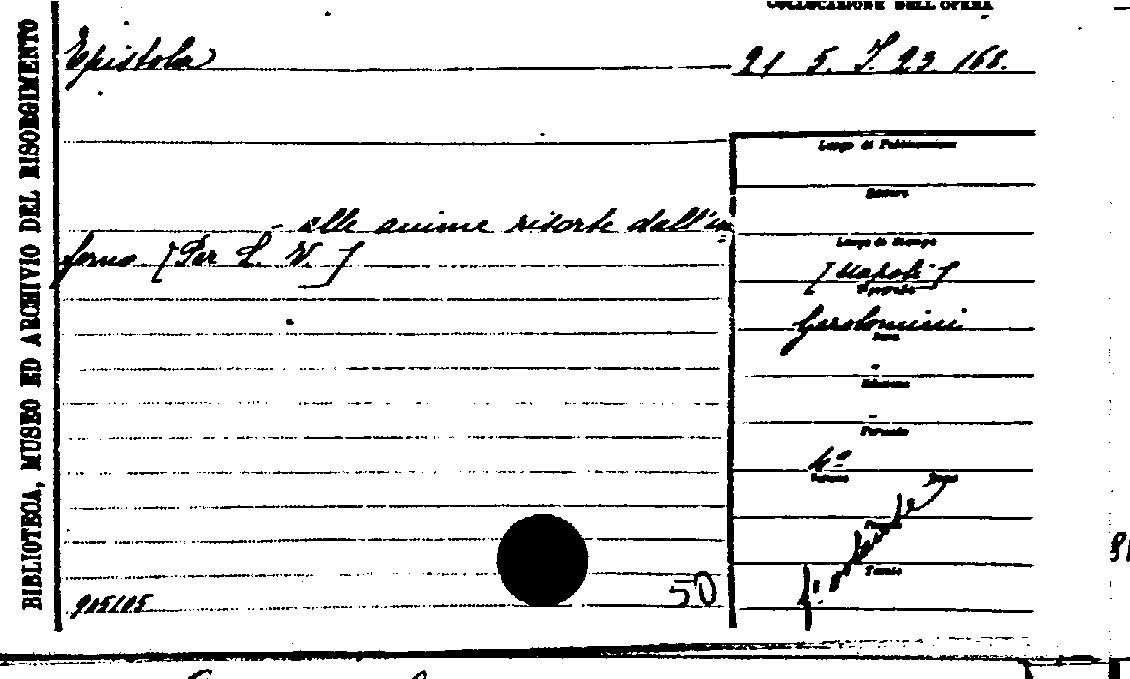 COLLOCAZIONE DELL'OPERA
Epistola
21 5. I. 23. 168.
BIBLIOTECA, MUSEO ED ARCHIVIO DEL RISORGIMENTO
Luogo di Pubblicazione
Editore
- alle anime risorte dall'in=
ferno [Per L. V.]
Luogo di Stampa
[Napoli]
Tipografia
Gerolomini
Data
-
Edizione
-
Formato
4º
Volume
Pagine
Tomo
905105
50